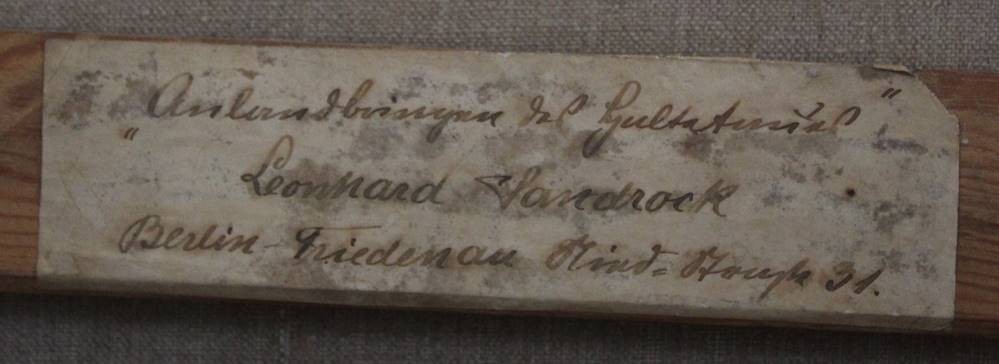 "Anlandbringen des Haltetaues"
Leonhard Sandrock
Berlin-Friedenau Ried-Straße 31.